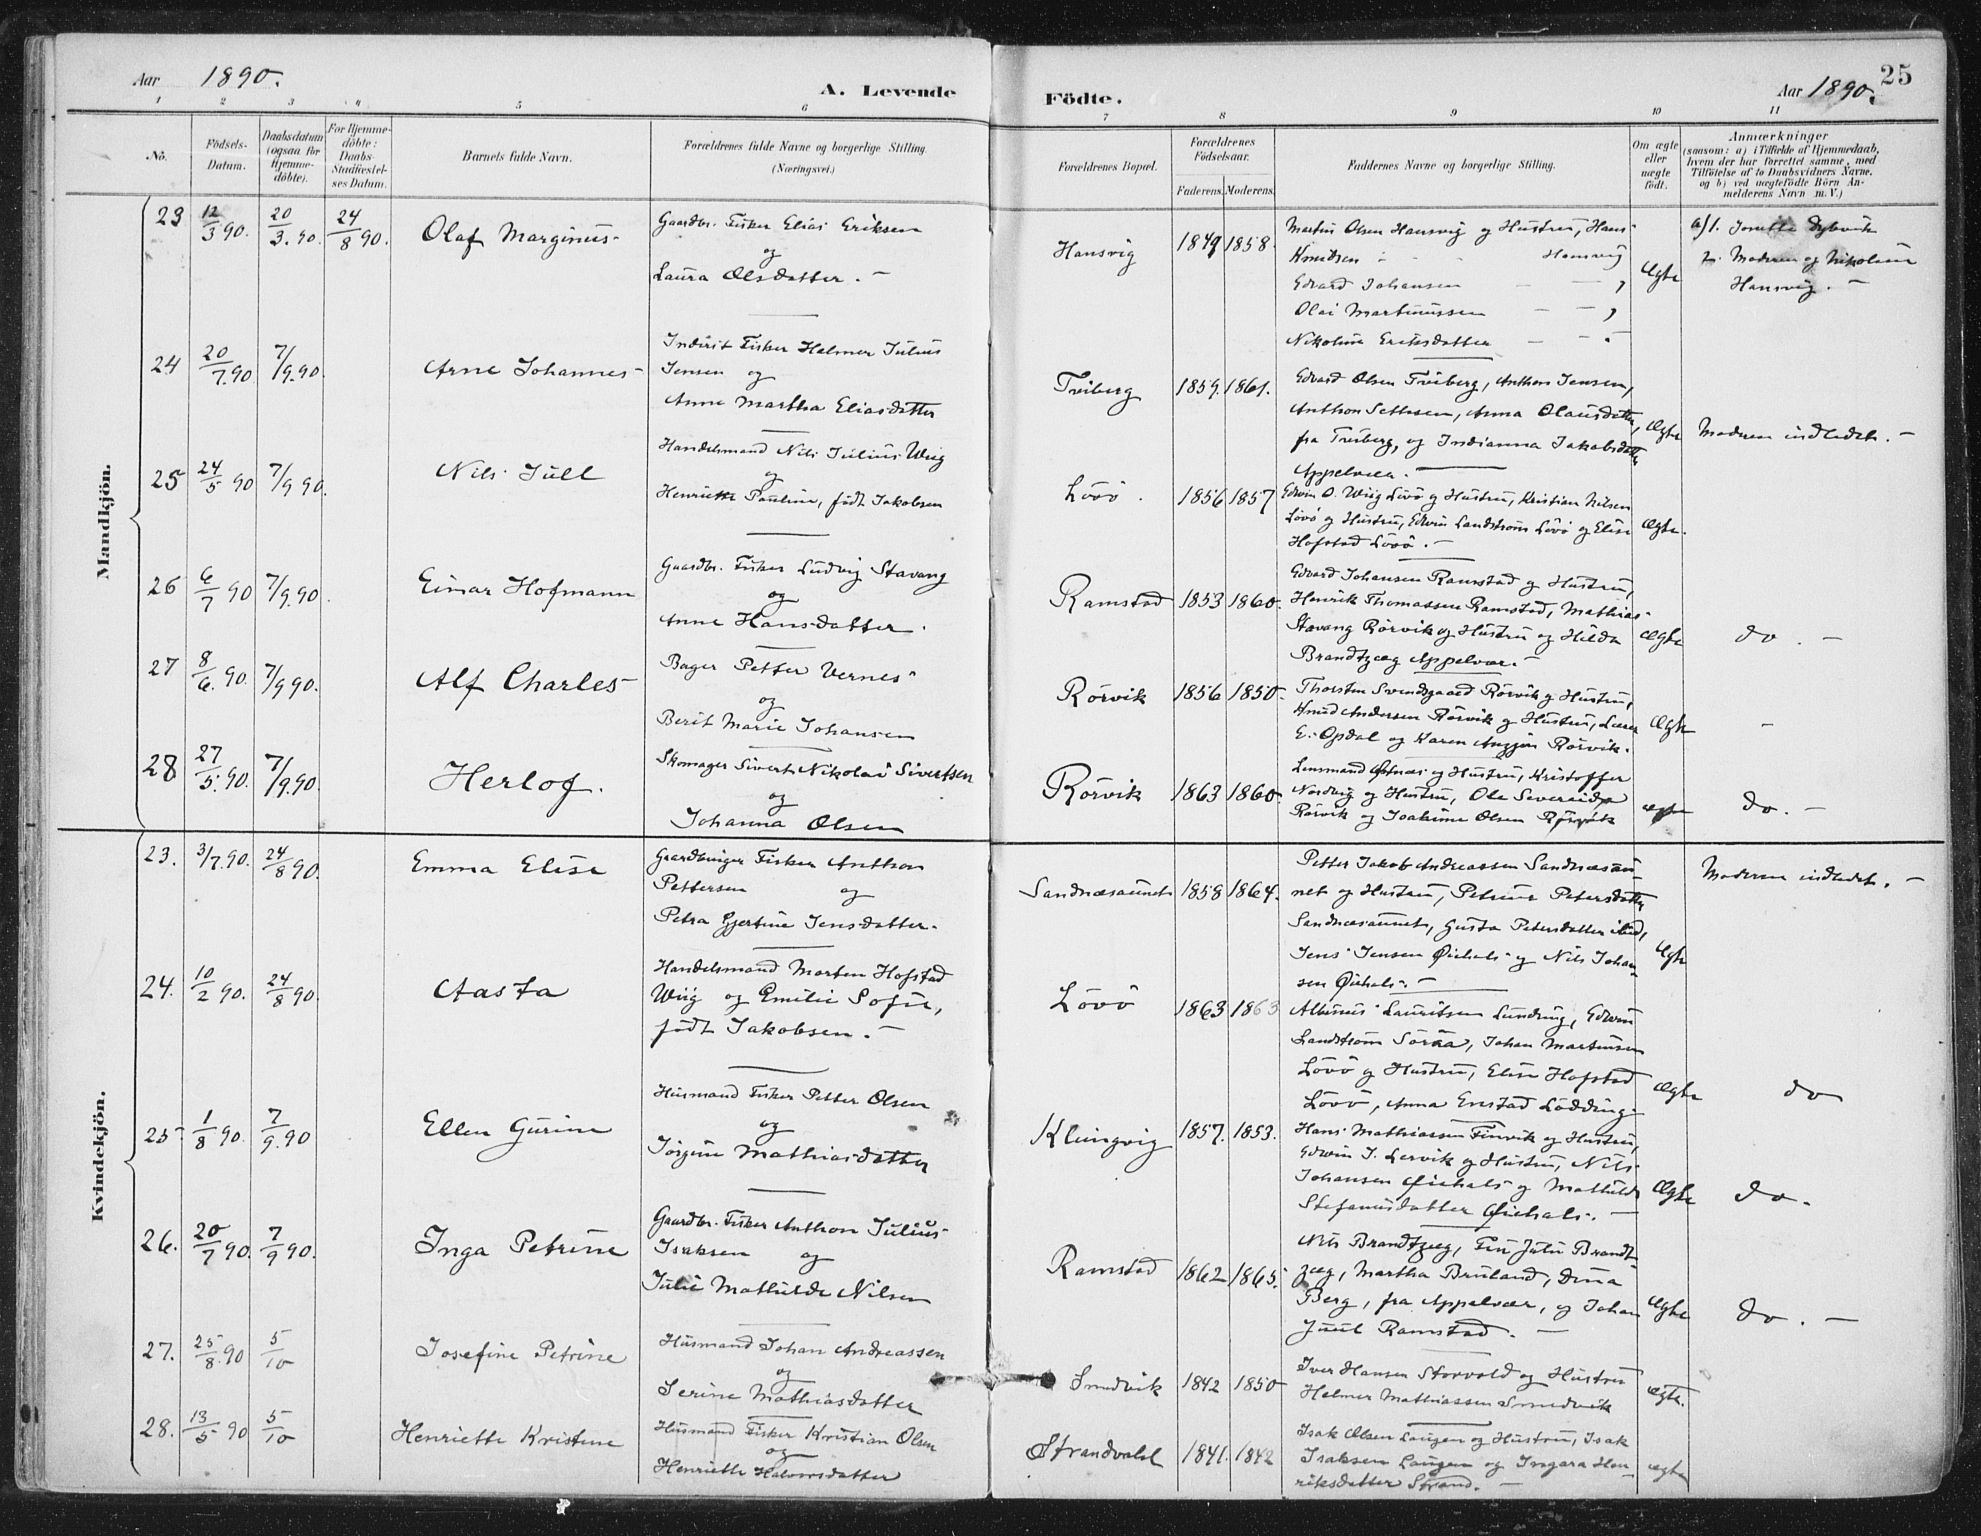 Aar 1890.
A. Levende
Födte.
Aar 1890.
25
1 2 3 4 5 6 7 8 9 10 11
No.
Födsels-Datum.
Daabsdatum (ogsaa for Hjemme-döbte).
For Hjemme-döbte: Daabs-Stadfæstel-ses Datum.
Barnets fulde Navn.
Forældrenes fulde Navne og borgerlige Stilling. (Næringsvei.)
Forældrenes Bopæl.
Forældrenes Födselsaar.
Faderens. Moderens.
Faddernes Navne og borgerlige Stilling.
Om ægte eller uægte födt.
Anmærkninger
(saasom: a) i Tilfælde af Hjemmedaab, hvem der har forrettet samme, med Tilföielse af to Daabsvidners Navne, og b) ved uægtefödte Börn An-melderens Navn m. V.)
Mandkjön.
23 12/3 90. 20/3. 90. 24/8 90. Olaf Marginus
Gaardbr. Fisker Elias Eriksen
og
Laura Olsdatter. —
Hansvig 1849 1858.
Martin Olsen Hansvig og Hustru, Hans
Knudsen Hansvig
Edvard Johansen
Olai Martinussen
Nikoline Eriksdatter
Ægte
a/1. Dybvik
2. Moderen og Nikoline
Hansvig. —
24 20/7. 90 7/9. 90. Arne Johannes
Inderst Fisker Helmer Julius
Jensen og
Anne Martha Eliasdatter
Tviberg 1859. 1861.
Edvard Olsen Tviberg, Anthon Jensen,
Anthon Sethsen, Anna Olausdatter,
fra Tviberg, og Indianna Jakobsdatter
Appelvær.
Ægte
Moderen indledet. —
25 24/5 90 7/9 90. Nils Jull
Handelsmand Nils Julius Wiig
og
Henriette Pauline, födt Jakobsen
Lövö. 1856 1857
Edvin O. Wiig Lövö og Hustru, Kristian Nilsen
Lövö og Hustru, Edvin Landstrøm Lövö og Elise
Hofstad Lövö. —
Ægte.
26 6/7 90 7/9. 90. Einar Hofmann
Gaardbr. Fisker Ludvig Stavang
og
Anne Hansdatter.
Ramstad 1853 1860.
Edvard Johansen Ramstad og Hustru,
Henrik Thomassen Ramstad, Mathias
Stavang Rörvik og Hustru og Hilda
Brandtzæg Appelvær. —
Ægte
do. —
27 8/6. 90. 7/9 90. Alf Charles
Bager Petter Vernes
og
Berit Marie Johansen
Rörvik 1856 1850.
Thorsten Svendsgaard Rörvik og Hustru,
Knud Andersen Rörvik og Hustru, Lærer
E. Opdal og Karen Rörvik.
Ægte
—
28 27/5. 90. 7/9. 90. Herlof.
Skomager Sivert Nikolai Sivertsen
og
Johanna Olsen
Rörvik 1863 1860.
Lensmand Østnæs og Hustru, Kristoffer
Nordvig og Hustru, Ole
Rörvik og Joakime Olsen Rörvik
ægte
do. —
Kvindekjön.
23. 3/7. 90. 24/8 90. Emma Elise
Gaardbruger Fisker Anthon
Pettersen og
Petra Gjertine Jensdatter.
Sandnæsaunet 1858 1864.
Petter Jakob Andreassen Sandnæsau-
net og Hustru, Petrine Petersdatter
Sandnæsaunet, Gusta Petersdatter ibid,
Jens Jensen Öiehals og Nils Johan-
sen Öiehals. —
Ægte
Moderen indledet. —
24. 10/2 90. 24/8 90. Aasta
Handelsmand Morten Hofstad
Wiig og Emilie Sofie,
födt Jakobsen. —
Lövö 1863 1863
Albinus Lauritsen Lunding, Edvin
Landstrøm Söraa, Johan Martinsen
Lövö og Hustru, Elise Hofstad
Lövö, Anna Lödding.
Ægte
do
25 1/8 90. 7/9. 90 Ellen Gurine
Husmand Fisker Petter Olsen
og
Jörgine Mathiasdatter
Klungvig 1857. 1853.
Hans Mathiassen Finvik og Hustru,
Edvin J. Lervik og Hustru, Nils
Johansen Öiehals og Mathilde
Stefanusdatter Öiehals. —
Ægte
do.
26. 20/7 90. 7/9 90. Inga Petrine
Gaardbr. Fisker Anthon Julius
Isaksen og
Julie Mathilde Nilsen
Ramstad 1862 1865.
Nils Brandtzæg, Brandt-
zæg, Martha Bruland, Dina
Berg, fra Appelvær, og Johan
Juul Ramstad. —
Ægte
do. —
27. 25/8. 90 5/10 Josefine Petrine
Husmand Johan Andreassen
og
Serine Mathiasdatter
Smedvik 1842 1850
Iver Hansen Storvold og Hustru
Helmer Mathiassen Smedvik
ægte.
28. 13/5 90 5/10 Henriette Kristine
Husmand Fisker Kristian Olsen
og
Henriette Halvorsdatter
Strandvald 1841. 1842
Isak Olsen Laugen og Hustru, Isak
Isaksen Laugen og Ingara Hen-
riksdatter Strand. —
ægte